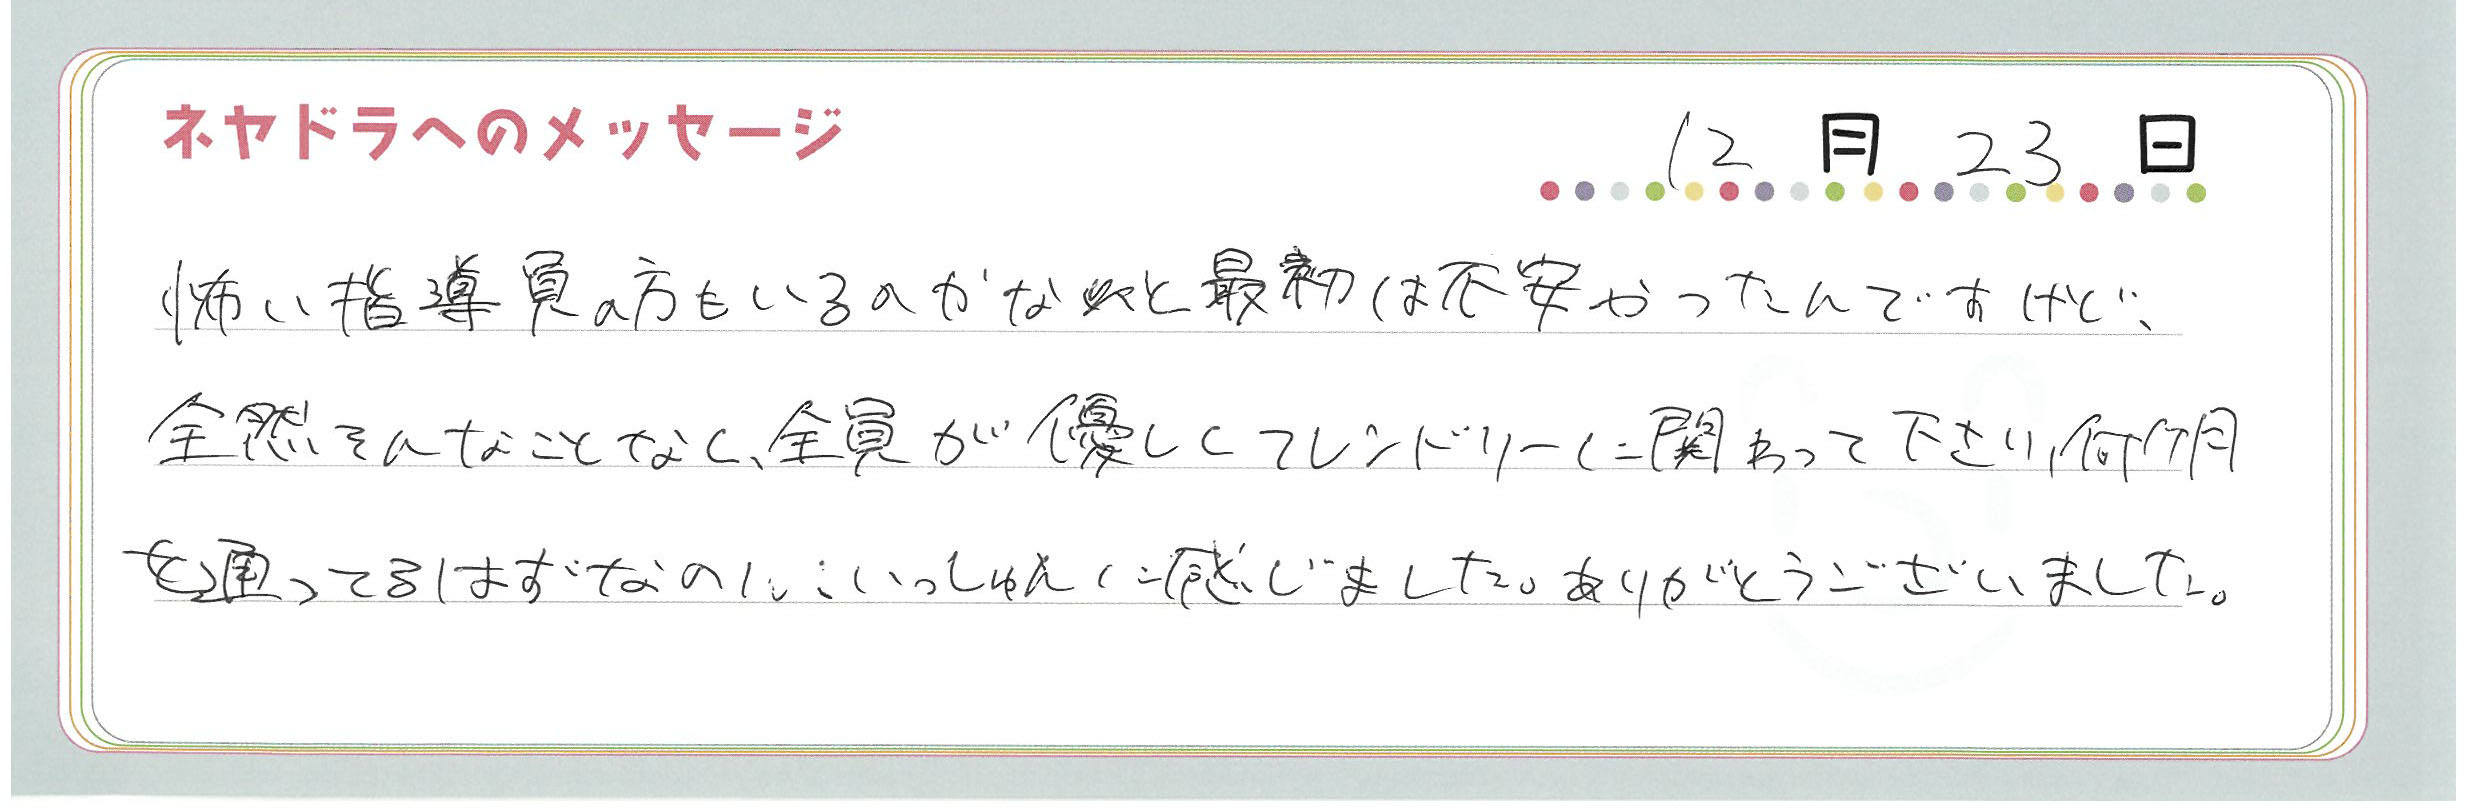 ネヤドラへのメッセージ
12月23日
怖い指導員の方もいるのかなと最初は不安やったんですけど、
全然そんなことなく、全員が優しくフレンドリーに関わって下さり、何ケ月
を通ってるはずなのに、いっしゅんに感じました。ありがとうございました。